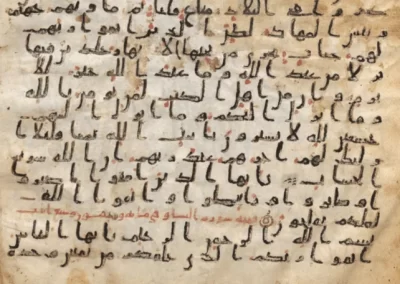 كفروا في البلد متع قليل ثم ماويهم جهنم
وبئس المهاد لكن الذين اتقوا ربهم
لهم جنت تجري من تحتها الانهر خلدين فيها
نزلا من عند الله وما عند الله خير للا
برار وان من اهل الكتب لمن يومن بالله
وما انزل اليكم وما انزل اليهم
خشعين لله لا يشترون بايت الله ثمنا قليلا ا
وليك لهم اجرهم عند ربهم ان الله سريع
الحساب يايها الذين امنوا اصبروا
وصابروا ورابطوا واتقوا الله
لعلكم تفلحون سورة النسا
بسم الله الرحمن الرحيم يايها الناس
اتقوا ربكم الذي خلقكم من نفس وحدة